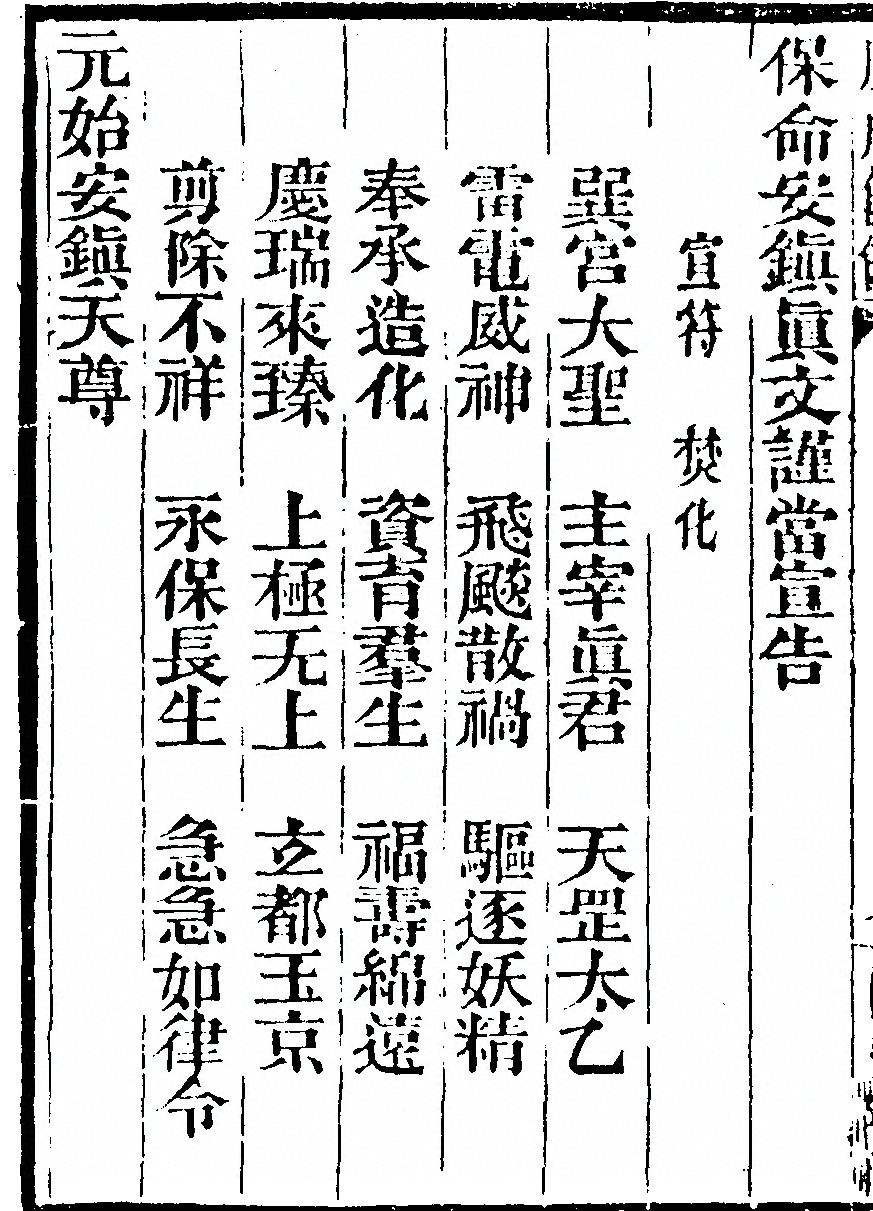 保命安鎮眞文謹當宣告
宣符　焚化
巽宮大聖　主宰眞君　天罡大乙
雷電威神　飛飈散禍　驅逐妖精
奉承造化　資育羣生　福壽綿遠
慶瑞來臻　上極无上　玄都玉京
剪除不祥　永保長生　急急如律令
元始安鎮天尊